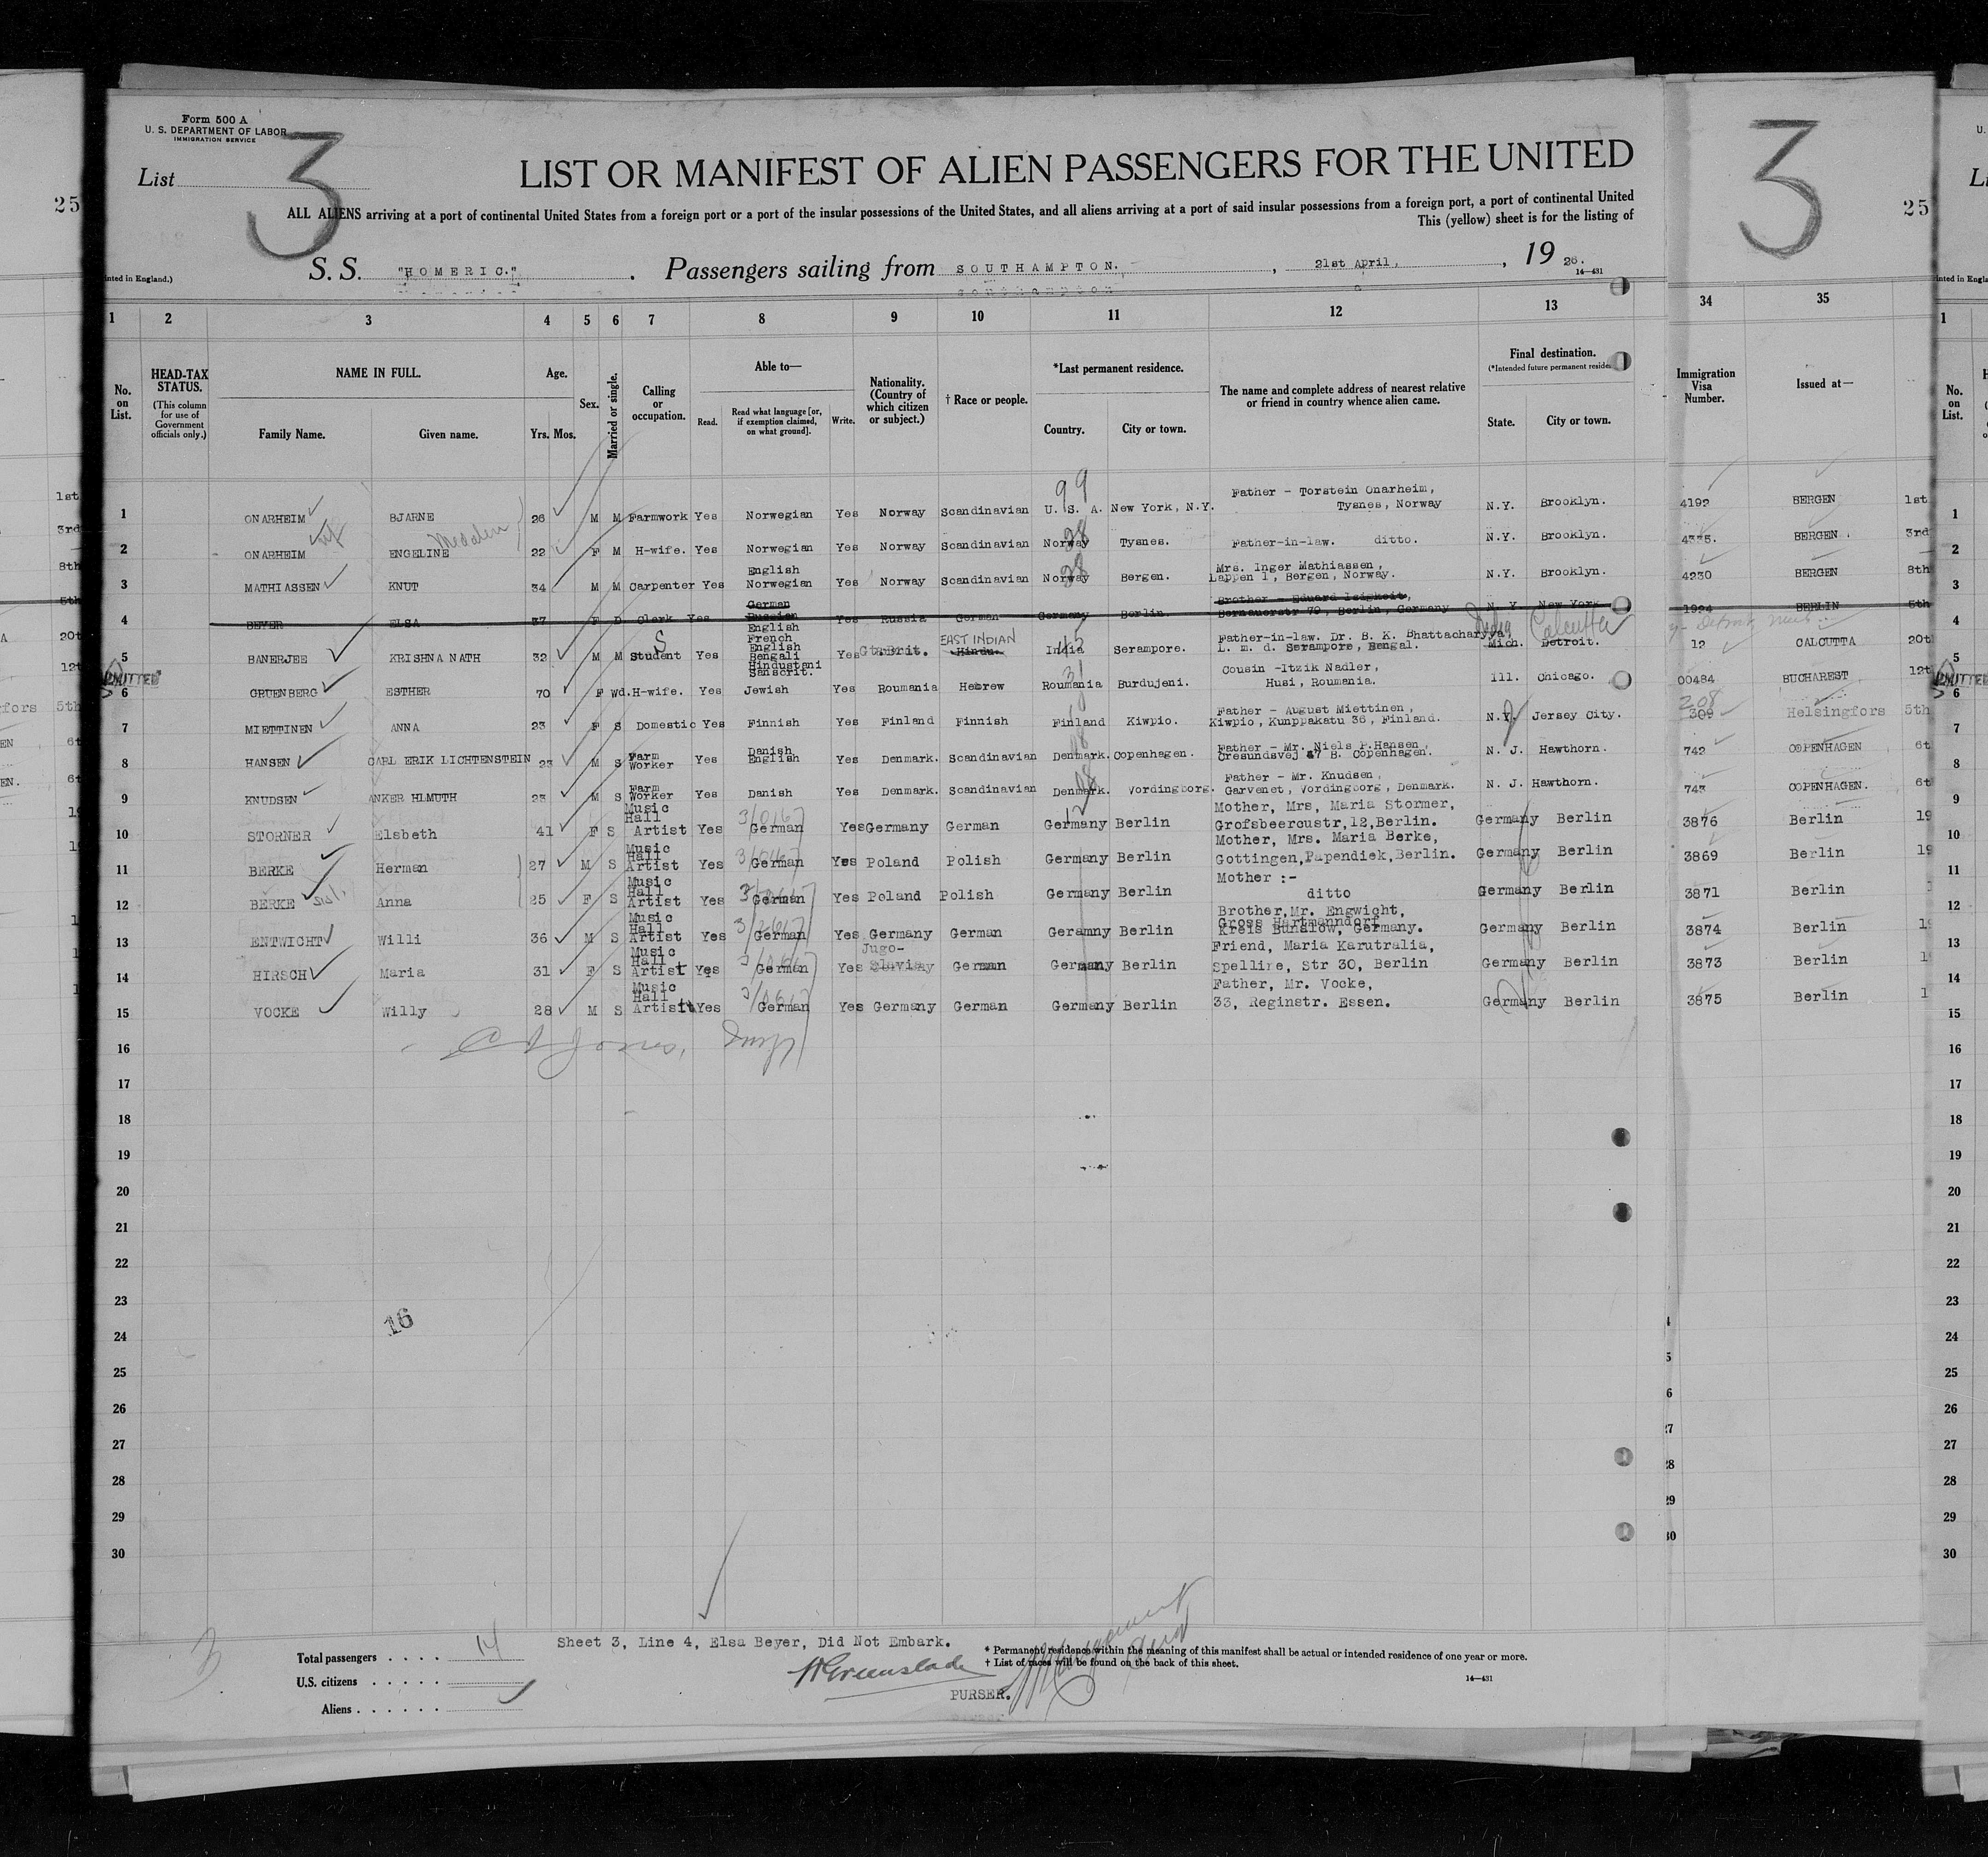 Form 500 A
U. S. DEPARTMENT OF LABOR
IMMIGRATION SERVICE
List
3
LIST OR MANIFEST OF ALIEN PASSENGERS FOR THE UNITED
ALL ALIENS arriving at a port of continental United States from a foreign port or a port of the insular possessions of the United States, and all aliens arriving at a port of said insular possessions from a foreign port, a port of continental United
This (yellow) sheet is for the listing of
S. S. "HOMERIC." . Passengers sailing from SOUTHAMPTON. , 21st April, , 19 26.
14—431
3
25
25
1 2 3 4 5 6 7 8 9 10 11 12 13 34 35
No. on List.
HEAD-TAX STATUS.
(This column for use of Government officials only.)
NAME IN FULL.
Family Name. Given name.
Age.
Yrs. Mos.
Sex.
Married or single.
Calling or occupation.
Able to—
Read. Read what language [or, if exemption claimed, on what ground]. Write.
Nationality. (Country of which citizen or subject.)
† Race or people.
*Last permanent residence.
Country. City or town.
The name and complete address of nearest relative or friend in country whence alien came.
Final destination.
(*Intended future permanent reside
State. City or town.
Immigration Visa Number.
Issued at—
99
1 ONARHEIM BJARNE 26 M M Farmwork Yes Norwegian Yes Norway Scandinavian U. S. A. New York, N.Y. Father - Torstein Onarheim, Tysnes, Norway N.Y. Brooklyn. 4192 BERGEN 1st
2 ONARHEIM ENGELINE 22 F M H-wife. Yes Norwegian Yes Norway Scandinavian Norway Tysnes. Father-in-law. ditto. N.Y. Brooklyn. 4335. BERGEN 3rd
3 MATHIASSEN KNUT 34 M M Carpenter Yes English Norwegian Yes Norway Scandinavian Norway Bergen. Mrs. Inger Mathiassen, Lappen 1, Bergen, Norway. N.Y. Brooklyn. 4230 BERGEN 8th
4 BEYER ELSA 37 F D Clerk Yes German Russian English Yes Russia German Germany Berlin. Brother - Eduard Isigkeit, Bernauerstr 79, Berlin, Germany N. Y. New York 1924 BERLIN 5th
India Calcutta
5 BANERJEE KRISHNA NATH 32 M M Student Yes French English Bengali Hindustani Sanscrit. Yes Gt.Brit. EAST INDIAN Hindu. India Serampore. Father-in-law. Dr. B. K. Bhattacharyya, L. m. d. Serampore, Bengal. Mich. Detroit. 12 CALCUTTA 20t
6 GRUENBERG ESTHER 70 F Wd. H-wife. Yes Jewish Yes Roumania Hebrew Roumania Burdujeni. Cousin -Itzik Nadler, Husi, Roumania. Ill. Chicago. 00484 BUCHAREST 12t
7 MIETTINEN ANNA 23 F S Domestic Yes Finnish Yes Finland Finnish Finland Kiwpio. Father - August Miettinen, Kiwpio, Kunppakatu 36, Finland. N.J. Jersey City. 208 309 Helsingfors 5th
8 HANSEN CARL ERIK LICHTENSTEIN 23 M S Farm Worker Yes Danish English Yes Denmark. Scandinavian Denmark. Copenhagen. Father - Mr. Niels P.Hansen, Oresundsvej 47 B. Copenhagen. N. J. Hawthorn. 742 COPENHAGEN 6t
9 KNUDSEN ANKER HLMUTH 23 M S Farm Worker Yes Danish Yes Denmark. Scandinavian Denmark. Vordingborg. Father - Mr. Knudsen, Garvenet, Vordingborg, Denmark. N. J. Hawthorn. 743 COPENHAGEN. 6t
10 STORNER Elsbeth 41 F S Music Hall Artist Yes German Yes Germany German Germany Berlin Mother, Mrs, Maria Stormer, Grofsbeercustr,12,Berlin. Germany Berlin 3876 Berlin 19
11 BERKE Herman 27 M S Music Hall Artist Yes German Yes Poland Polish Germany Berlin Mother, Mrs. Maria Berke, Gottingen,Papendiek,Berlin. Germany Berlin 3869 Berlin 19
12 BERKE Anna 25 F S Music Hall Artist Yes German Yes Poland Polish Germany Berlin Mother :- ditto Germany Berlin 3871 Berlin
13 ENTWICHT Willi 36 M S Music Hall Artist Yes German Yes Germany German Geramny Berlin Brother,Mr. Engwicht, Gross Hartmanndorf Kreis Bunzlow, Germany. Germany Berlin 3874 Berlin
14 HIRSCH Maria 31 F S Music Hall Artist Yes German Yes Jugo-Slavia German Germany Berlin Friend, Maria Karutralia, Spellire, Str 30, Berlin Germany Berlin 3873 Berlin
15 VOCKE Willy 28 M S Music Hall Artist Yes German Yes Germany German Germany Berlin Father, Mr. Vocke, 33, Reginstr. Essen. Germany Berlin 3875 Berlin
16
17
18
19
20
21
22
23
24
25
26
27
28
29
30
16
Total passengers . . . . 14
U.S. citizens . . . . .
Aliens . . . . . .
Sheet 3, Line 4, Elsa Beyer, Did Not Embark.
PURSER.
* Permanent residence within the meaning of this manifest shall be actual or intended residence of one year or more.
† List of races will be found on the back of this sheet.
14—431